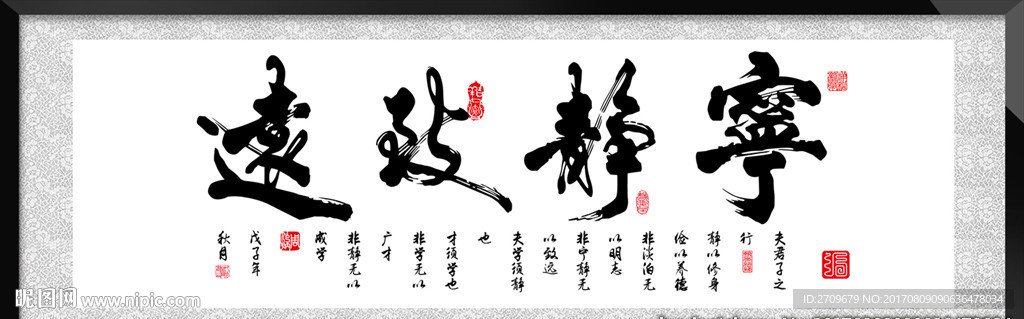 寧静致遠
夫君子之
行
静以修身
俭以养德
非淡泊无
以明志
非宁静无
以致远
夫学须静
也
才须学也
非学无以
广才
非静无以
成学
戊子年
秋月
昵图网 www.nipic.com
ID:2709679 NO:20170809090636478034